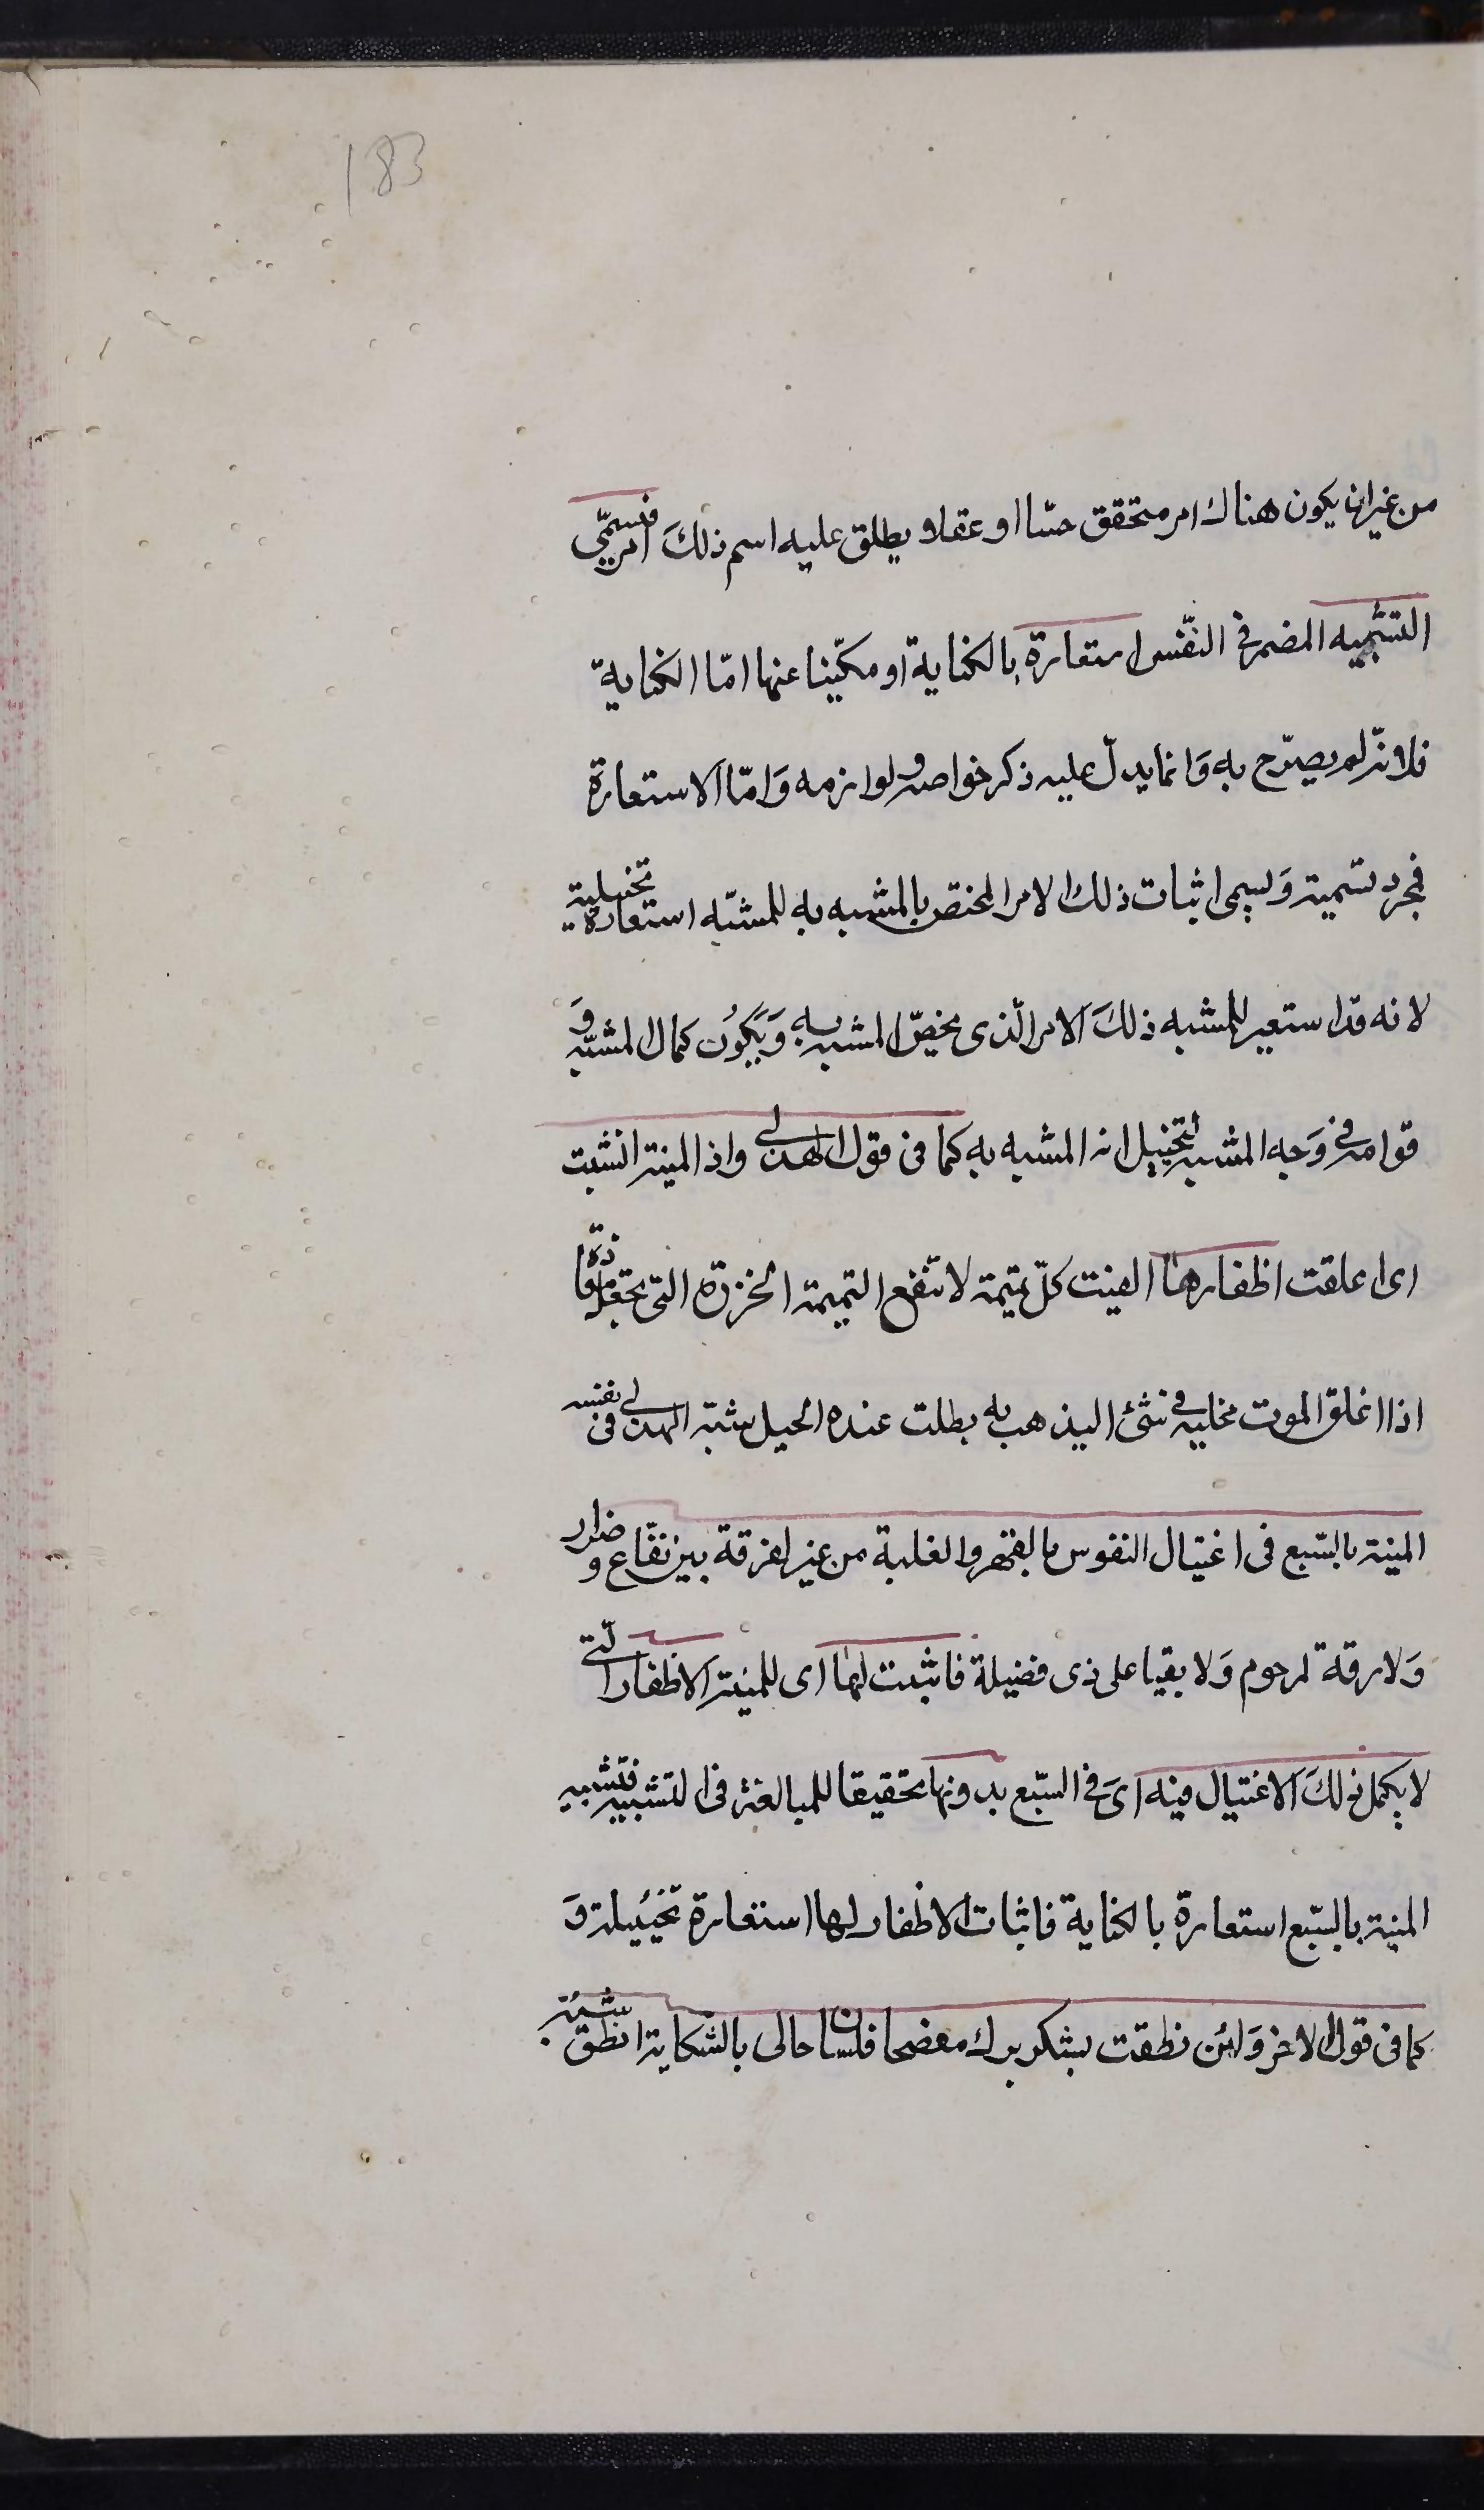 183
من غير ان يكون هناك امر متحقق حسّا او عقلا و يطلق عليه اسم ذلكَ امر فيسمّى
التشبيه المضمر فى النّفس استعارة بالكناية او مكنّيا عنها امّا الكناية
فلانّه لم يصرّح به وَانما يدلّ عليه ذكر خواصه و لوازمه وَامّا الاستعارة
فمجرد تسمية وَيسمى اثبات ذلك الامر المختص بالمشبه به للمشبّه استعارة تخييلية
لانه قد استعير للمشبه ذلكَ الامر الّذى يخصّ المشبه به وَيَكُون كمال المشبّه وَ
قوامه فى وَجه المشبه لتخييل انه المشبه به كما فى قول الهذلى واذا المنية انشبت
اى اعلقت اظفارها الفيت كلّ تميمة لا تنفع التميمة الخرزة التى تجعل معاذة
اذا اغلق الموت مخلبه فى شئ اليذهب به بطلت عنده الحيل شبّه الهذلى فى نفسه
المنية بالسّبع فى اغتيال النفوس بالقهر والغلبة من غير لفرقة بين نفّاع و ضرار
وَلا رقة لمرحوم وَلا بقيا على ذى فضيلة فاثبت لها اى للمنية الاظفار الّتى
لا يكمل ذلكَ الاغتيال فيه اىَ فى السّبع بدونها تحقيقا للمبالغة فى التشبيه فتشبيه
المنية بالسّبع استعارة بالكناية فاثبات الاظفار لها استعارة تخييلة وَ
كما فى قول الاخر وَلئن نطقت بشكر برك مفصحا فلسان حالى بالشكاية انطق شبّه